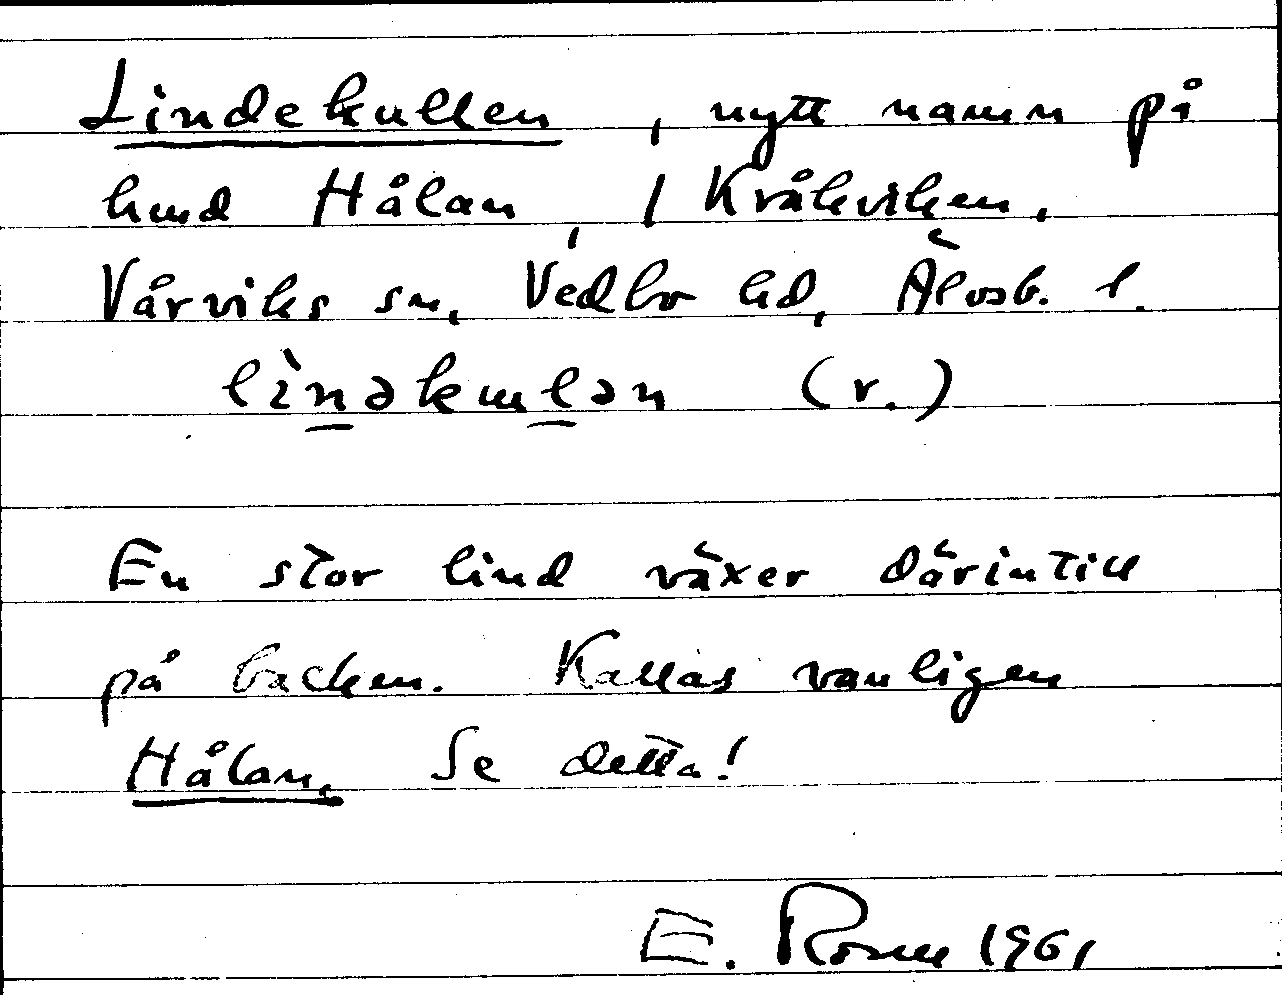 Lindekullen, nytt namn på
hmd Hålan, / Kråkviken,
Vårviks sn, Vedbo hd, Älvsb. l.
lìnəkuɯlən (r.)
En stor lind växer därintill
på backen. Kallas vanligen
Hålan. Se detta!
E. 1961